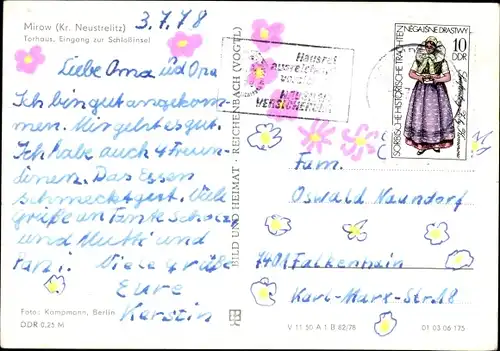 Mirow (Kr. Neustrelitz)
Torhaus, Eingang zur Schloßinsel
3.7.78
Liebe Oma ud Opa
Ich bin gut angekom-
men. Mir geht es gut.
Ich habe auch 4 Freun-
dinen. Das Essen
schmeckt gut. Viele
grüße an Tante
und Mutti und
Viele Grüße
Eure
Kerstin
Foto: Kampmann, Berlin
DDR 0,25 M
BILD UND HEIMAT · REICHENBACH (VOGTL)
Hausrat
ausreichend
VERSICHERN
SORBISCHE HISTORISCHE TRACHTEN
NĚGAJŠNE DRASTWY
10
DDR
Fam.
Oswald Naundorf
7401 Falkenhain
Karl-Marx-Str. 18
V 11 50 A 1 B 82/78
01 03 06 175